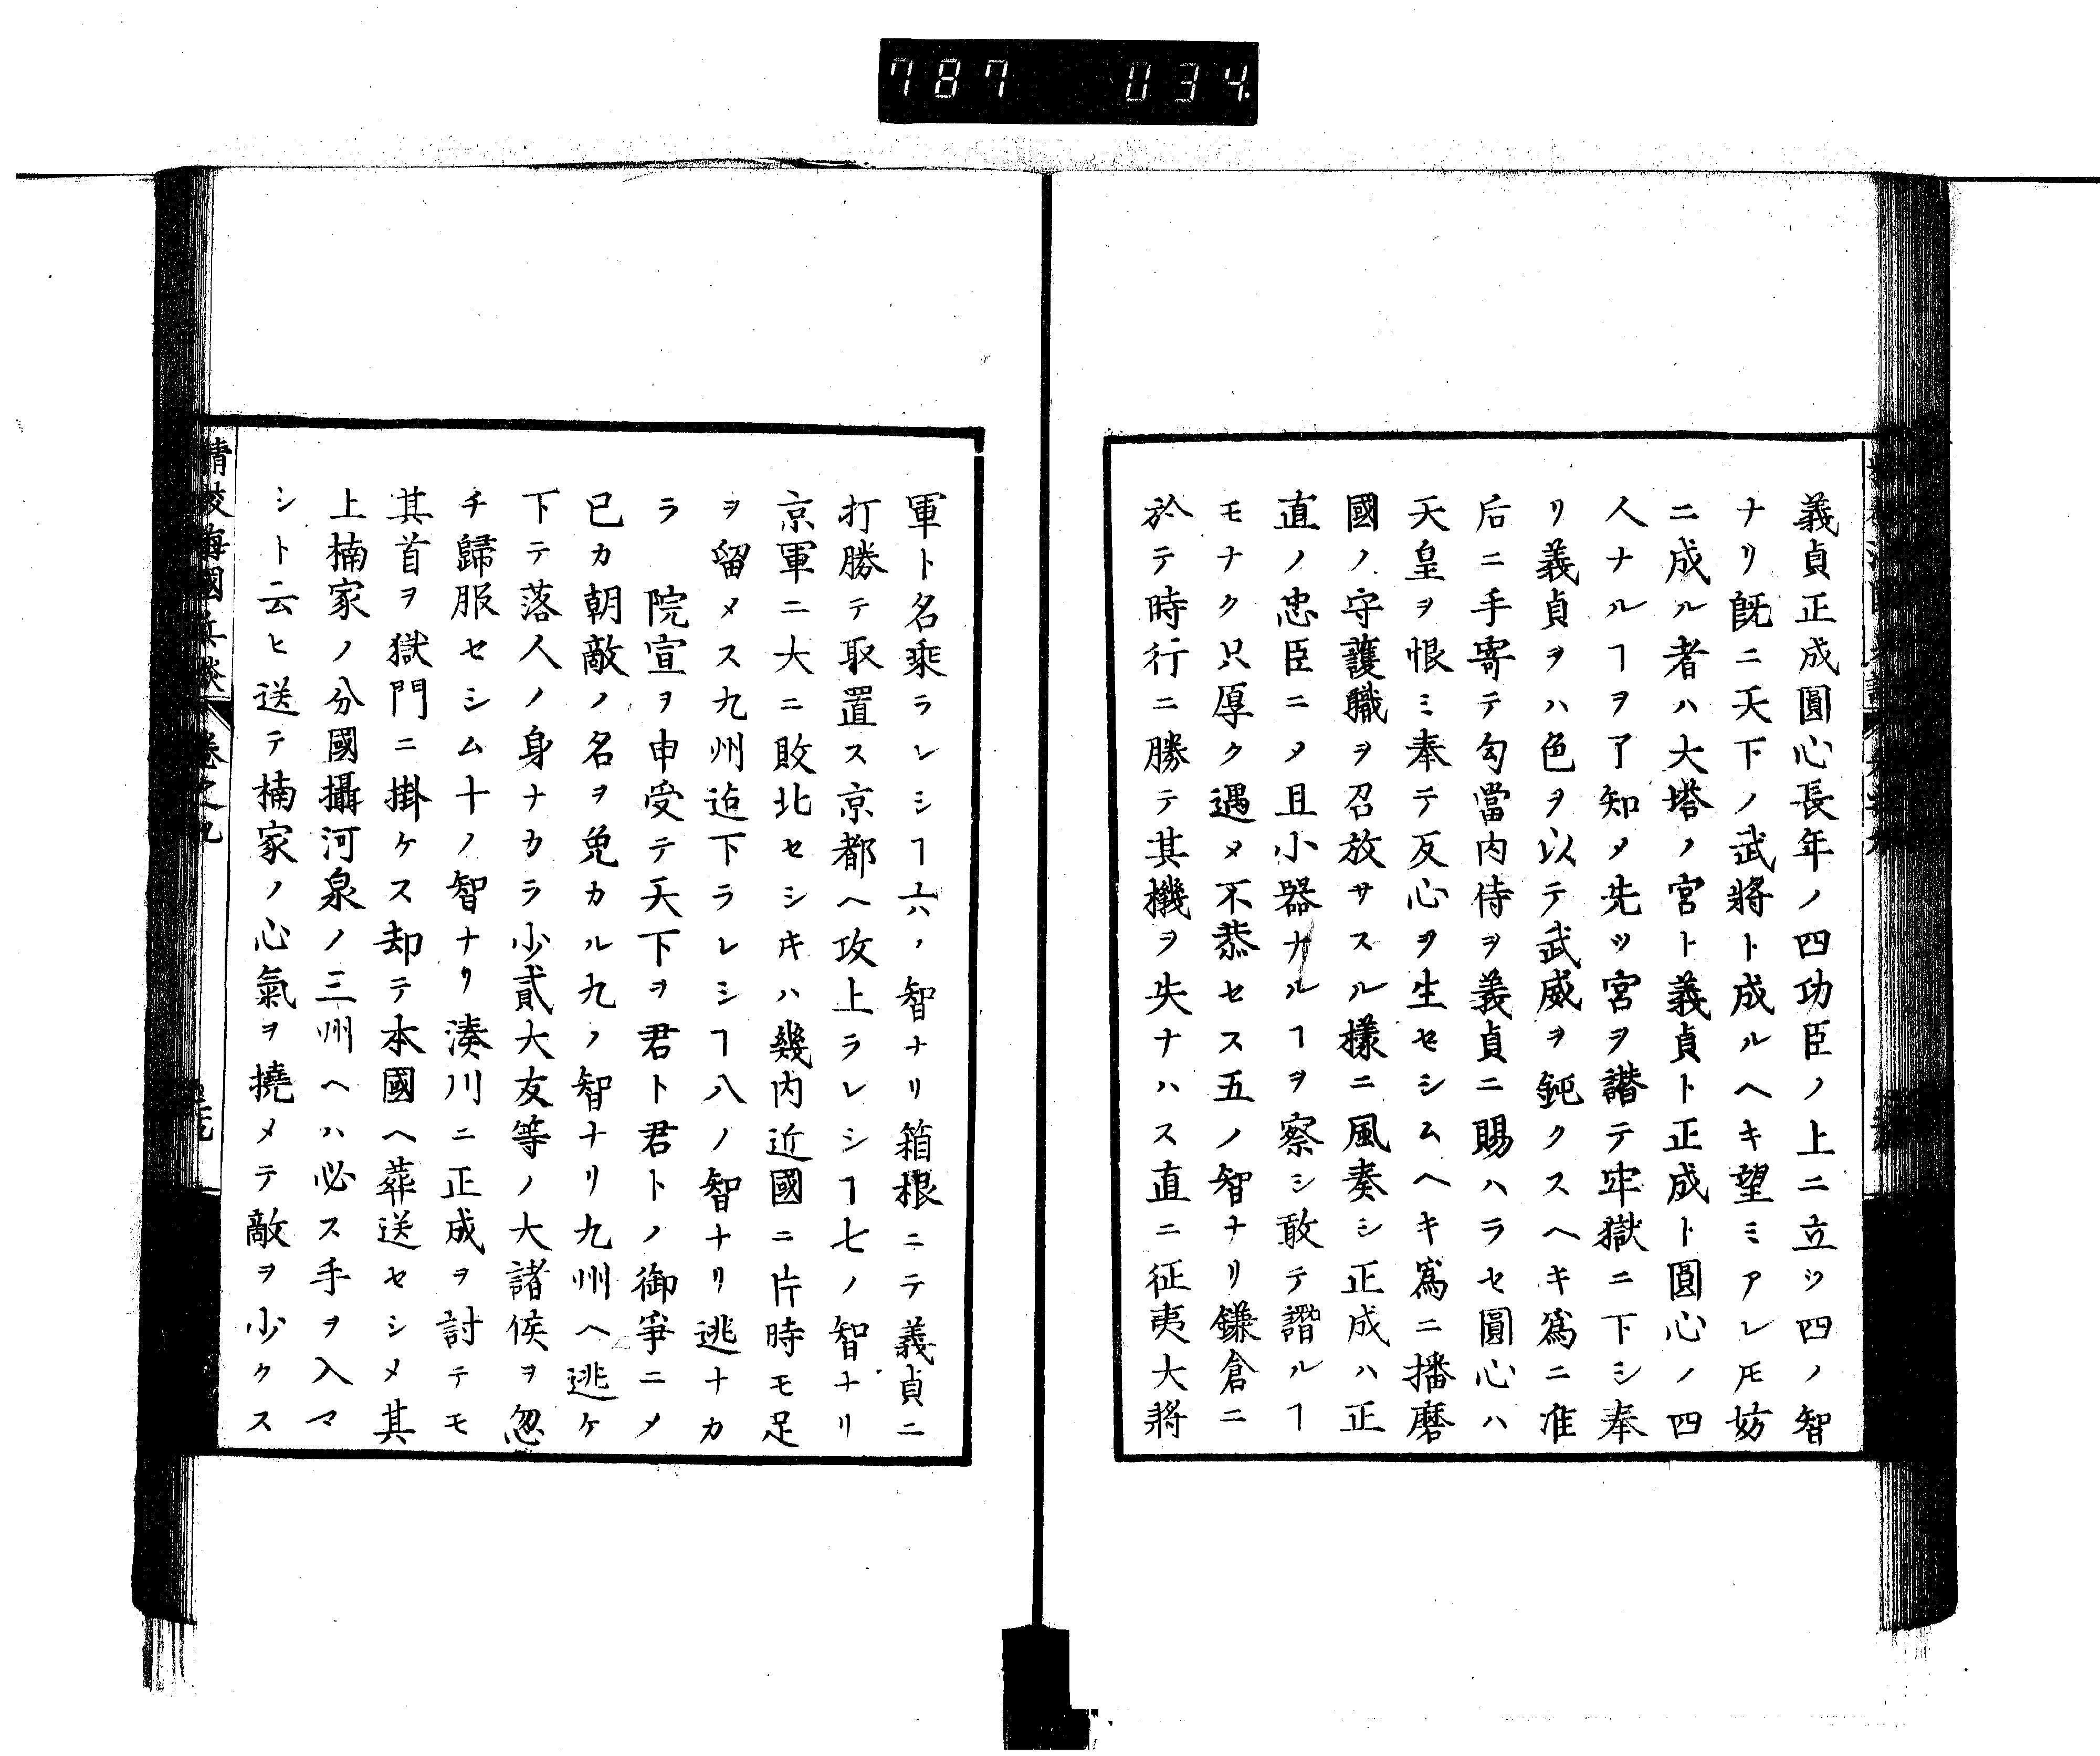 787 034
義貞正成圓心長年ノ四功臣ノ上ニ立ツ四ノ智
ナリ既ニ天下ノ武將ト成ルヘキ望ミアレ𪜈妨
ニ成ル者ハ大塔ノ宮ト義貞ト正成ト圓心ノ四
人ナルヿヲ了知メ先ツ宮ヲ譖テ牢獄ニ下シ奉
リ義貞ヲハ色ヲ以テ武威ヲ鈍クスヘキ爲ニ准
后ニ手寄テ勾當内侍ヲ義貞ニ賜ハラセ圓心ハ
天皇ヲ恨ミ奉テ反心ヲ生セシムヘキ爲ニ播磨
國ノ守護職ヲ召放サスル樣ニ風奏シ正成ハ正
直ノ忠臣ニメ且小器ナルヿヲ察シ敢テ譖ルヿ
モナク只厚ク遇メ不恭セス五ノ智ナリ鎌倉ニ
於テ時行ニ勝テ其機ヲ失ナハス直ニ征夷大將
軍ト名乘ラレシヿ六ノ智ナリ箱根ニテ義貞ニ
打勝テ取置ス京都ヘ攻上ラレシヿ七ノ智ナリ
京軍ニ大ニ敗北セシキハ幾内近國ニ片時モ足
ヲ留メス九州迄下ラレシヿ八ノ智ナリ逃ナカ
ラ 院宣ヲ申受テ天下ヲ君ト君トノ御爭ニメ
已カ朝敵ノ名ヲ免カル九ノ智ナリ九州ヘ逃ケ
下テ落人ノ身ナカラ少貳大友等ノ大諸侯ヲ忽
チ歸服セシム十ノ智ナリ湊川ニ正成ヲ討テモ
其首ヲ獄門ニ掛ケス却テ本國ヘ葬送セシメ其
上楠家ノ分國攝河泉ノ三州ヘハ必ス手ヲ入マ
シト云ヒ送テ楠家ノ心氣ヲ撓メテ敵ヲ少クス
精校海國兵談 卷之九